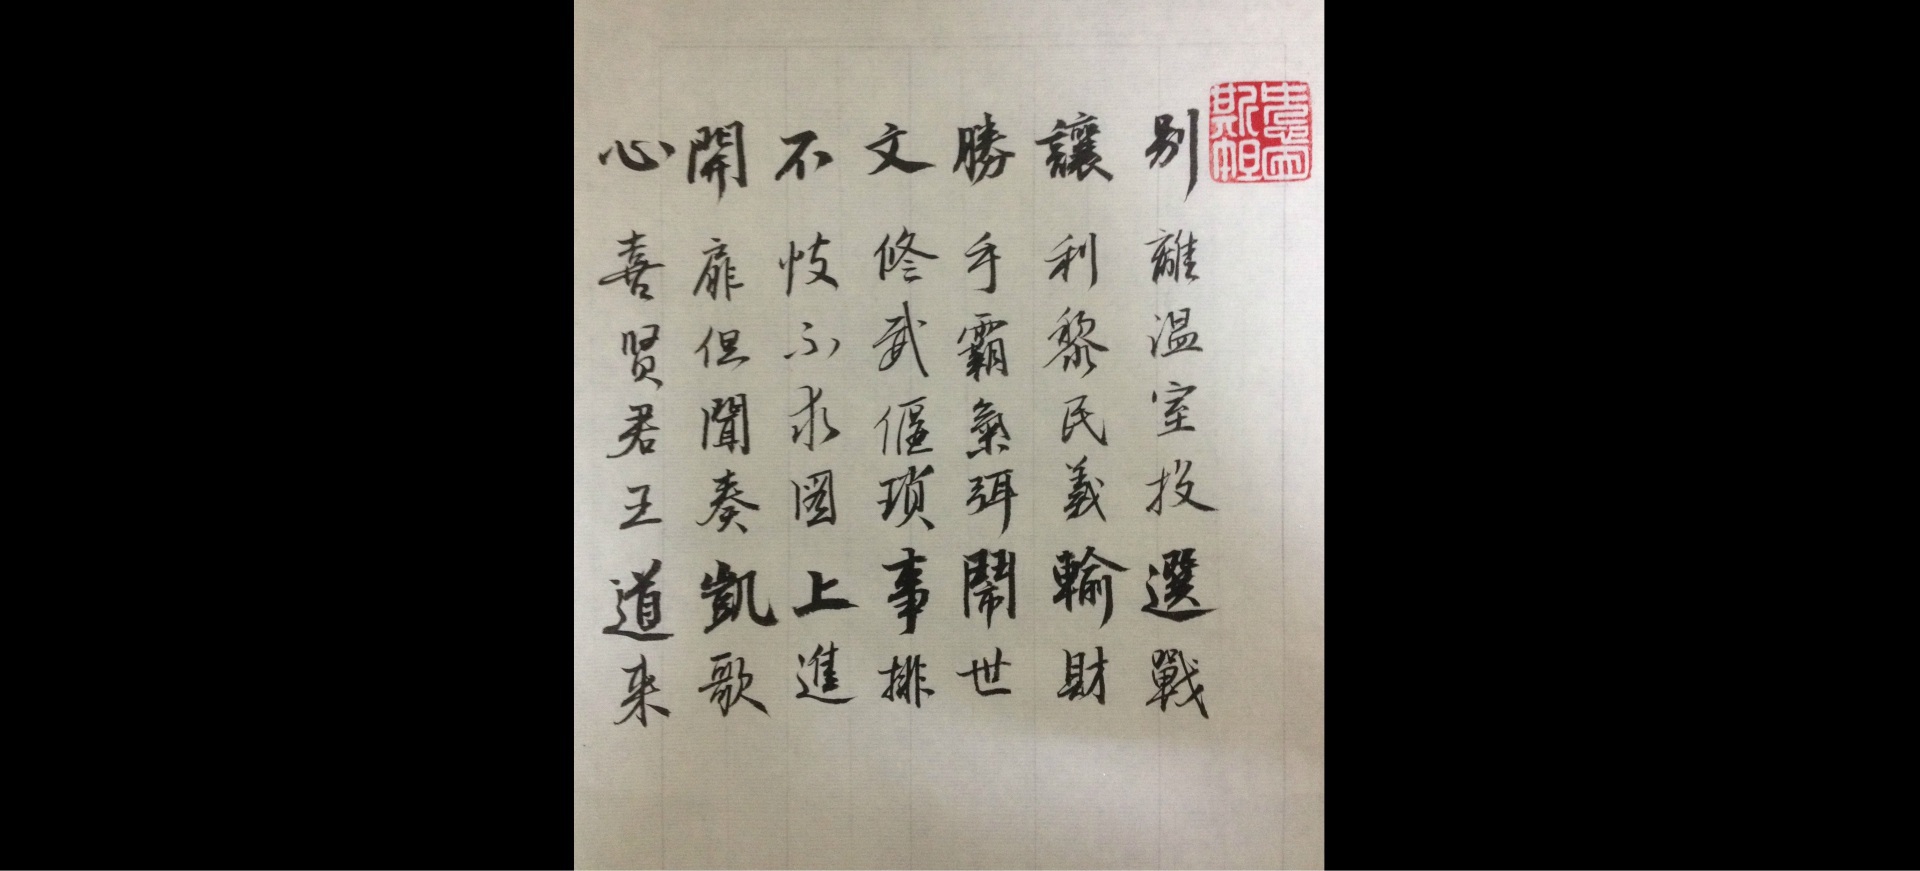 別離溫室投選戰
讓利黎民義輸財
勝手霸氣弭鬧世
文修武偃瑣事排
不忮不求圖上進
開扉但聞奏凱歌
心喜賢君王道来